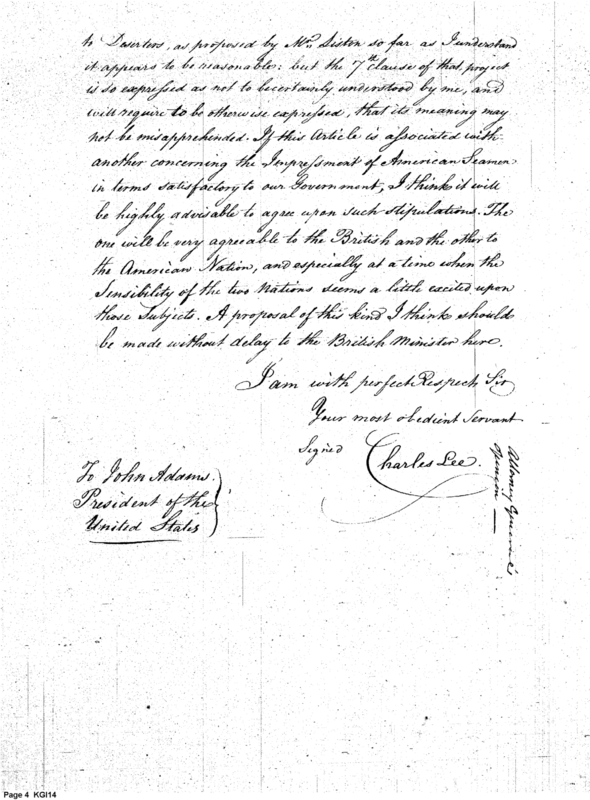 to Deserters, as proposed by Mr. Liston so far as I understand
it appears to be reasonable: but the 7th clause of that project
is so expressed as not to be certainly understood by me, and
will require to be otherwise expressed, that its meaning may
not be misapprehended. If this Article is associated with
another concerning the Impressment of American Seamen
in terms satisfactory to our Government, I think it will
be highly advisable to agree upon such stipulations. The
one will be very agreeable to the British and the other to
the American Nation, and especially at a time when the
Sensibility of the two Nations seems a little excited upon
those Subjects. A proposal of this kind I think should
be made without delay to the British Minister here.
I am with perfect Respect Sir
Your most obedient servant
Signed Charles Lee.
To John Adams
President of the
United States
Attorney General's
opinion
Page 4 KGI14